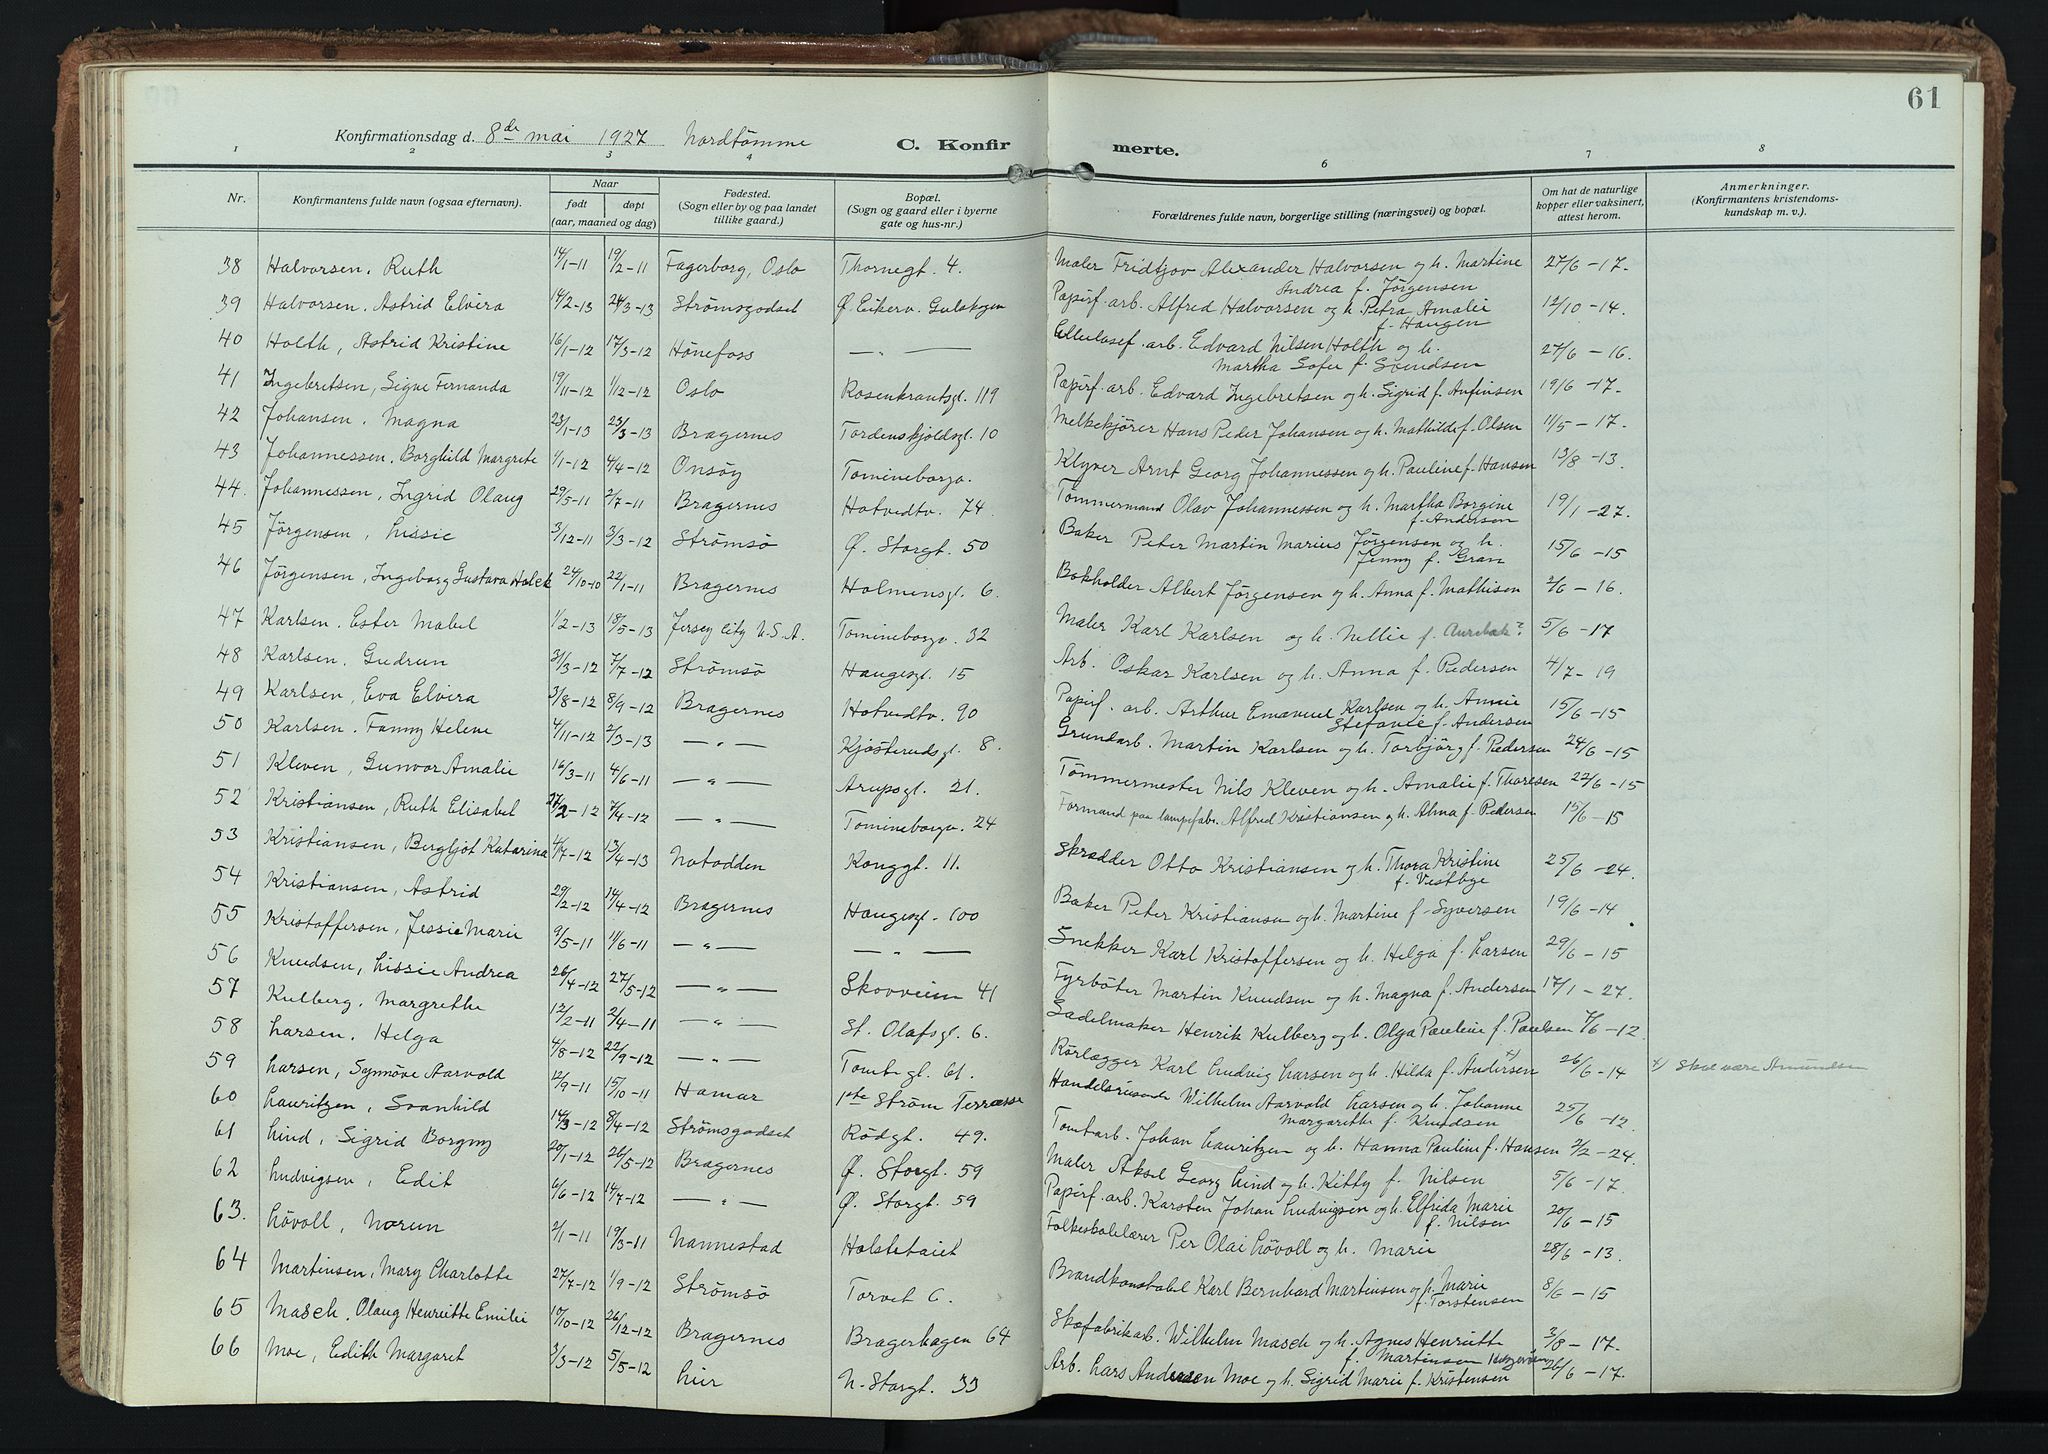 61
Konfirmationsdag d. 8de mai 1927 Nordtømme C. Konfirmerte.
1 2 3 4 6 7 8
Nr. Konfirmantens fulde navn (ogsaa efternavn). Naar født døpt (aar, maaned og dag) Fødested. (Sogn eller by og paa landet tillike gaard.) Bopæl. (Sogn og gaard eller i byerne gate og hus-nr.) Forældrenes fulde navn, borgerlige stilling (næringsvei) og bopæl. Om hat de naturlige kopper eller vaksinert, attest herom. Anmerkninger. (Konfirmantens kristendoms-kundskap m. v.).
38 Halvorsen, Ruth 14/1-11 19/2-11 Fagerborg, Oslo Thornegt. 4. Maler Fridtjov Alexander Halvorsen og h. Martine Andrea f. Jörgensen 27/6-17.
39 Halvorsen, Astrid Elvira 14/2-13 24/3-13 Strømsgodset Ø. Eikerv. Gulskogen Papirf. arb. Alfred Halvorsen og h. Petra Amalie f. Haugen 12/10-14.
40 Holth, Astrid Kristine 16/1-12 17/3-12 Hønefoss — " — Cellulosef. arb. Edvard Nilsen Holth og h. Martha Sofie f. Svendsen 27/6-16.
41 Ingebretsen, Signe Fernanda 19/11-12 1/12-12 Oslo Rosenkrantsgt. 119 Papirf. arb. Edvard Ingebretsen og h. Sigrid f. Anfinsen 19/6-17.
42 Johansen, Magna 23/1-13 23/3-13 Bragernes Tordenskjoldsgt. 10 Melkekjører Hans Peder Johansen og h. Mathilde f. Olsen 11/5-17.
43 Johannessen, Borghild Margrete 1/1-12 4/4-12 Onsöy Tomineborgv. Klyver Arnt Georg Johannessen og h. Pauline f. Hansen 13/8-13.
44. Johannessen, Ingrid Olaug 29/5-11 2/7-11 Bragernes Hotvedtv. 74. Tømmermand Olav Johannessen og h. Martha Borgine f. Andersen 19/1-27.
45 Jörgensen, Lissie 3/12-11 3/3-12 Strømsø Ø. Storgt. 50 Baker Peter Martin Marius Jörgensen og h. Jenny f. Gran 15/6-15
46 Jörgensen, Ingeborg Gustava Holck 24/10-10 22/1-11 Bragernes Holmensgt. 6. Bokholder Albert Jörgensen og h. Anna f. Mathisen 2/6-16.
47 Karlsen, Ester Mabel 1/2-13 18/5-13 Jersey City U.S.A. Tomineborgv. 32 Maler Karl Karlsen og h. Nellie f. 5/6-17
48 Karlsen, Gudrun 31/3-12 7/7-12 Strømsö Haugesgt. 15 Arb. Oskar Karlsen og h. Anna f. Pedersen 4/7-19
49 Karlsen, Eva Elvira 3/8-12 8/9-12 Bragernes Hotvedtv. 90 Papirf. arb. Arthur Emanuel Karlsen og h. Annie Stefanie f. Andersen 15/6-15
50 Karlsen, Fanny Helene 4/11-12 2/3-13 — " — Kjösterudsgt. 8. Grundarb. Martin Karlsen og h. Torbjörg f. Pedersen 24/6-15
51 Kleven, Gunvor Amalie 16/3-11 4/6-11 — " — Arupsgt. 21. Tömmermester Nils Kleven og h. Amalie f. Thoresen 22/6-15
52 Kristiansen, Ruth Elisabet 27/2-12 7/4-12 — " — Tomineborgv. 24 Formand paa lampefabr. Alfred Kristiansen og h. Alma f. Pedersen 15/6-15
53 Kristiansen, Bergljot Katarina 14/7-12 13/4-13 Notodden Konggt. 11. Skrædder Otto Kristiansen og h. Thora Kristine f. Vestbye 25/6-24.
54 Kristiansen, Astrid 29/2-12 14/4-12 Bragernes Haugesgt. 100 Baker Peter Kristiansen og h. Martine f. Syversen 19/6-14
55 Kristoffersen, Jessie Marie 9/5-11 11/6-11 — " — — " — Snekker Karl Kristoffersen og h. Helga f. Larsen 29/6-15
56 Knudsen, Lissie Andrea 26/4-12 27/5-12 — " — Skovveien 41 Fyrbøter Martin Knudsen og h. Magna f. Andersen 17/1-27.
57 Kulberg, Margrethe 12/2-11 2/4-11 — " — St. Olafsgt. 6. Sadelmaker Henrik Kulberg og h. Olga Pauline f. Paulsen 7/6-12.
58 Larsen, Helga 4/8-12 22/9-12 — " — Tomtegt. 61. Rørlægger Karl Ludvig Larsen og h. Hilda f. Andersen x) 26/6-14 x) Skal være Amundsen
59 Larsen, Synnöve Aarvold 12/9-11 15/10-11 Hamar 1ste Strøm Terrasse Handelsreisende Wilhelm Aarvold Larsen og h. Johanne Margarethe f. Knudsen 25/6-12.
60 Lauritzen, Svanhild 14/3-12 8/4-12 Strømsgodset Rödgt. 49. Tomtarb. Johan Lauritzen og h. Hanna Pauline f. Hansen 2/2-24.
61 Lind, Sigrid Borgny 20/1-12 26/5-12 Bragernes Ø. Storgt. 59 Maler Aksel Georg Lind og h. Kitty f. Nilsen 5/6-17.
62 Ludvigsen, Edit 6/6-12 14/7-12 — " — Ø. Storgt. 59 Papirf. arb. Karsten Johan Ludvigsen og h. Elfrida Marie f. Nilsen 20/6-15
63. Lövoll, Norun 2/1-11 19/3-11 Nannestad Holstetaiet Folkeskolelærer Per Olai Lövoll og h. Marie 28/6-13.
64 Martinsen, Mary Charlotte 27/7-12 1/9-12 Strømsö Torvet 6. Brandkonstabel Karl Bernhard Martinsen og h. Marie f. Torstensen 8/6-15
65 Masch, Olaug Henriette Emilie 10/10-12 26/12-12 Bragernes Bragerhagen 64 Skofabrikarb. Wilhelm Masch og h. Agnes Henriette f. Martinsen 3/8-17.
66 Moe, Edith Margaret 3/3-12 5/5-12 Lier N. Storgt. 33 Arb. Lars Andersen Moe og h. Sigrid Marie f. Kristensen 26/6-17.